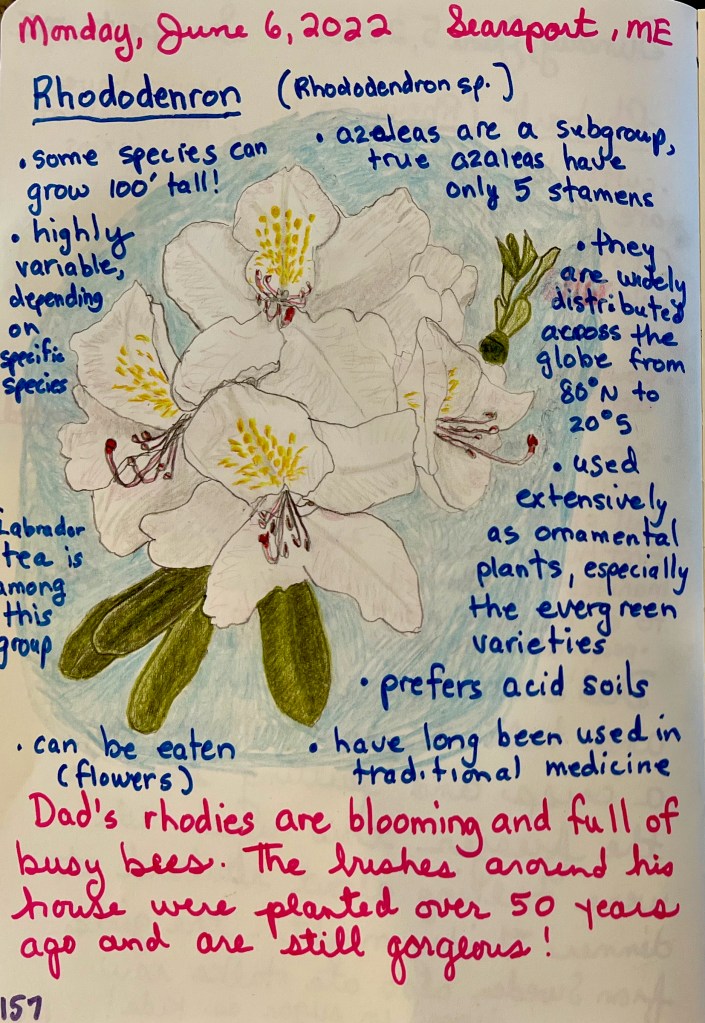 Monday, June 6, 2022 Searsport, ME
Rhododenron (Rhododendron sp.)
• some species can
grow 100' tall!
• azaleas are a subgroup,
true azaleas have
only 5 stamens
• highly
variable,
depending
on
specific
species
• they
are widely
distributed
across the
globe from
80°N to
20°S
• used
extensively
as ornamental
plants, especially
the evergreen
varieties
Labrador
tea is
among
this
group
• prefers acid soils
• can be eaten
(flowers)
• have long been used in
traditional medicine
Dad's rhodies are blooming and full of
busy bees. The bushes around his
house were planted over 50 years
ago and are still gorgeous!
157